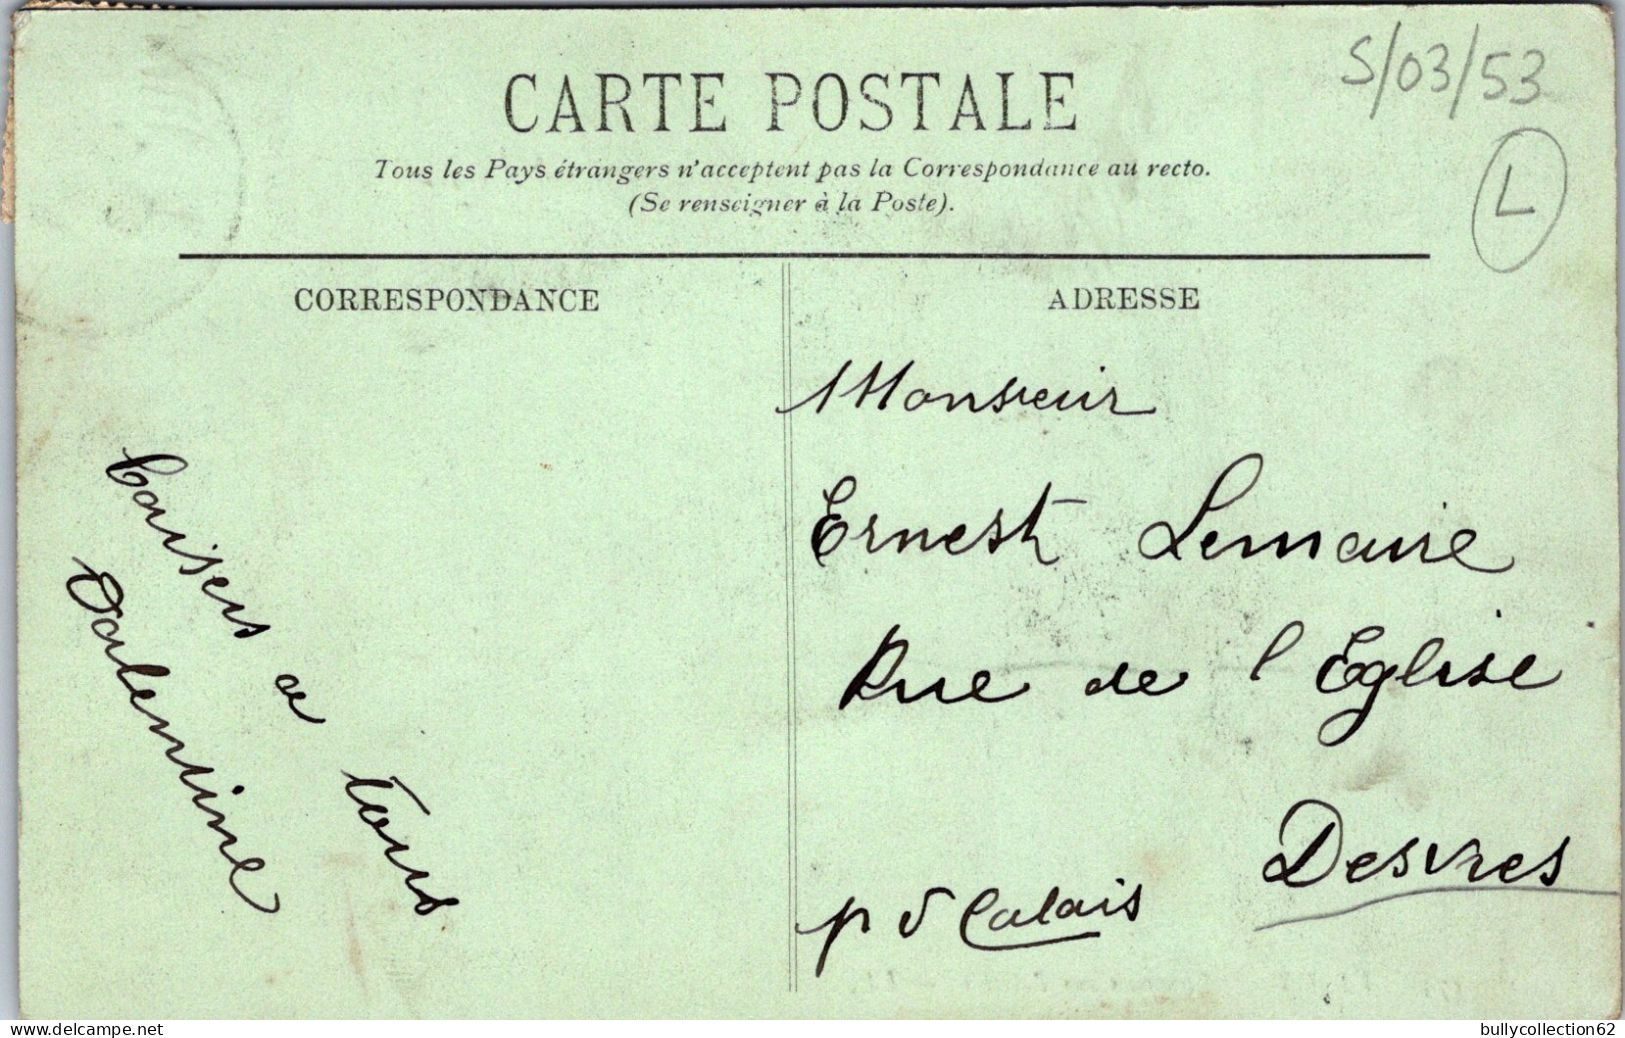 S/03/53
L
CARTE POSTALE
Tous les Pays étrangers n'acceptent pas la Correspondance au recto.
(Se renseigner à la Poste).
CORRESPONDANCE
ADRESSE
Baisers a
Tous
Monsieur
Ernest Lemaire
Rue de l'Eglise
Desvres
p d Calais
www.delcampe.net
bullycollection62